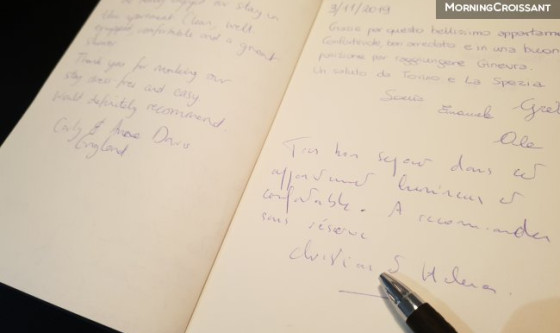 MorningCroissant
enjoyed our stay in
this apartment. Clean, well
equipped, comfortable and a great
shower.
Thank you for making our
stay stress free and easy
Would definitely recommend
Davis
England
3/11/2019
Grazie per questo bellissimo appartamento
Confortevole, ben arredato e in una buona
posizione per raggiungere Ginevra.
Un saluto da Torino e La Spezia
Emanuele
Très bon séjour dans cet
appartement lumineux et
confortable. A recommander
sans réserve
Christine